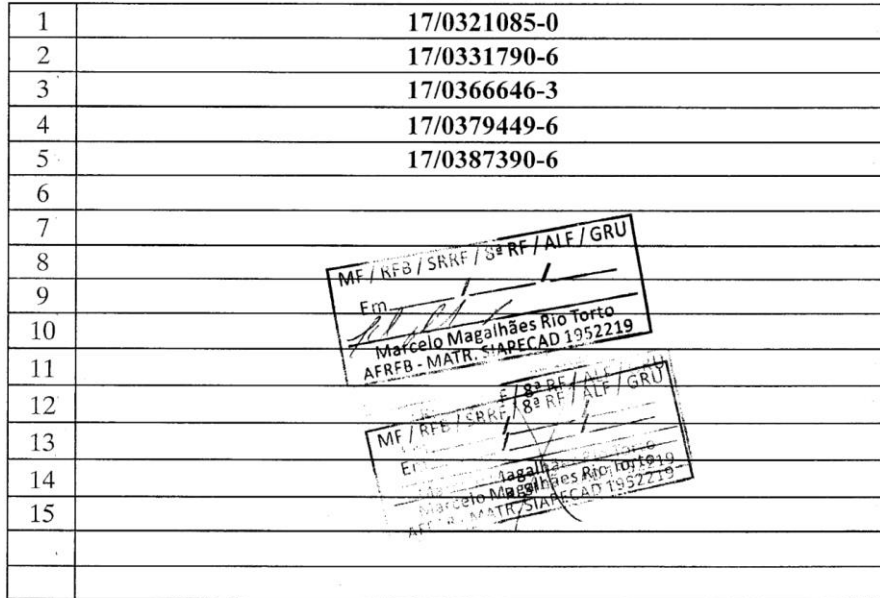 1 17/0321085-0
2 17/0331790-6
3 17/0366646-3
4 17/0379449-6
5 17/0387390-6
6
7
8
9
10
11
12
13
14
15
MF / RFB / SRRF / 8ª RF / ALF / GRU
Em / /
Marcelo Magalhães Rio Torto
AFRFB - MATR. SIAPECAD 1952219
MF / RFB / SRRF / 8ª RF / ALF / GRU
Marcelo Magalhães Rio Torto
MATR. SIAPECAD 1952219